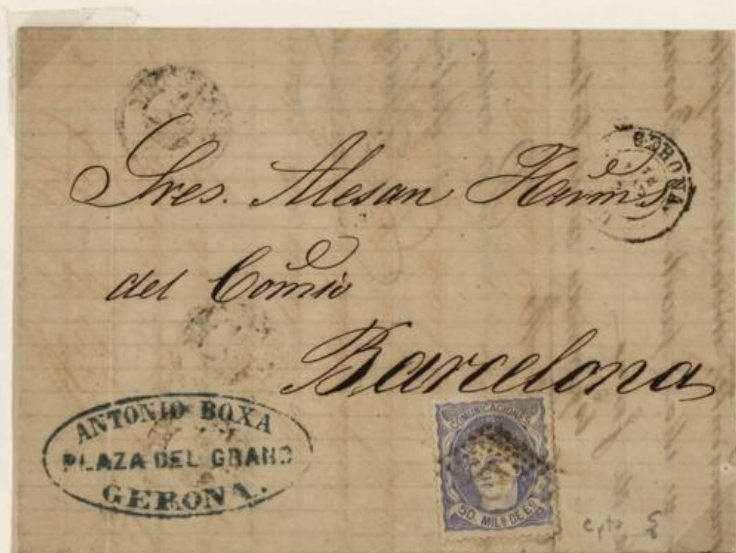 GERONA.
Sres. Alesan Herms
del Comío
Barcelona
ANTONIO BOXA
PLAZA DEL GRANO
GERONA.
COMUNICACIONES
50 MILS DE EO
cpto